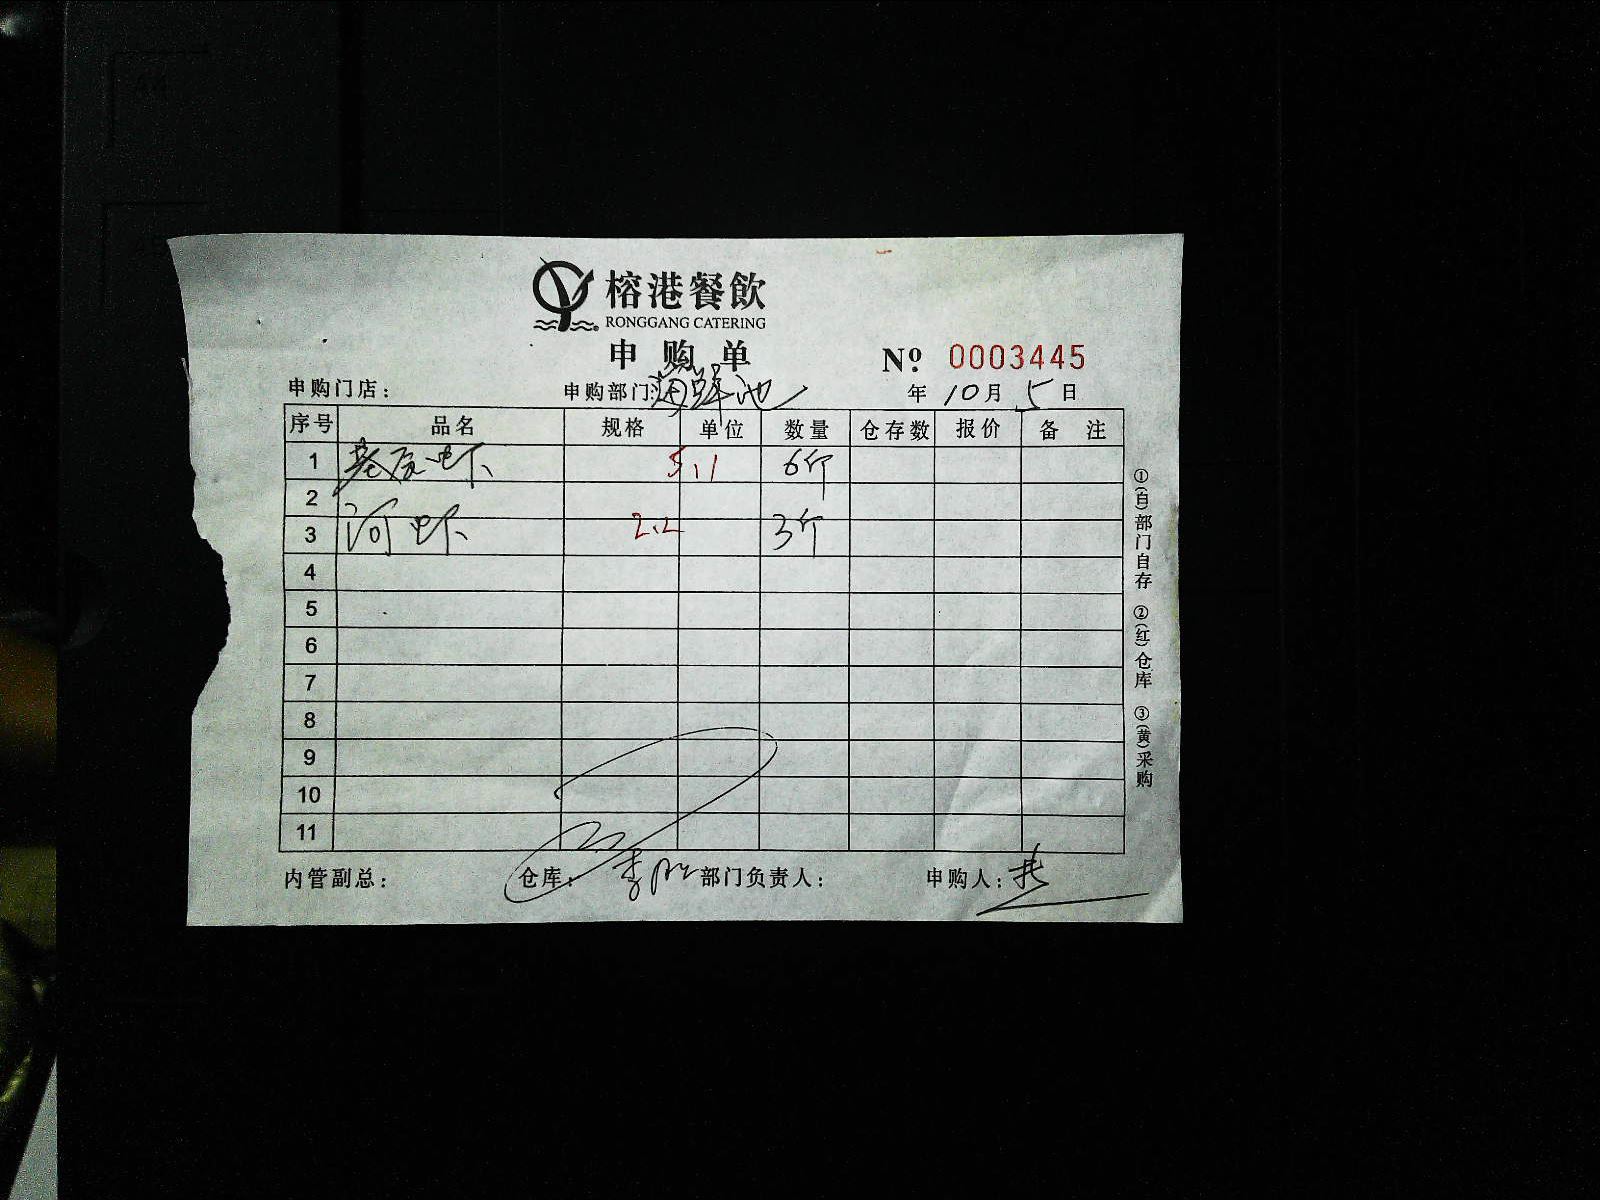 榕港餐飲
RONGGANG CATERING
申购单
Nº: 0003445
申购门店： 申购部门:海鲜池 年 10月 5日
序号 品名 规格 单位 数量 仓存数 报价 备 注
1 基尾虾 5.1 6斤
2
3 河虾 2.2 3斤
4
5
6
7
8
9
10
11
内管副总： 仓库： 部门负责人： 申购人：
①(白)部门自存 ②(红)仓库 ③(黄)采购